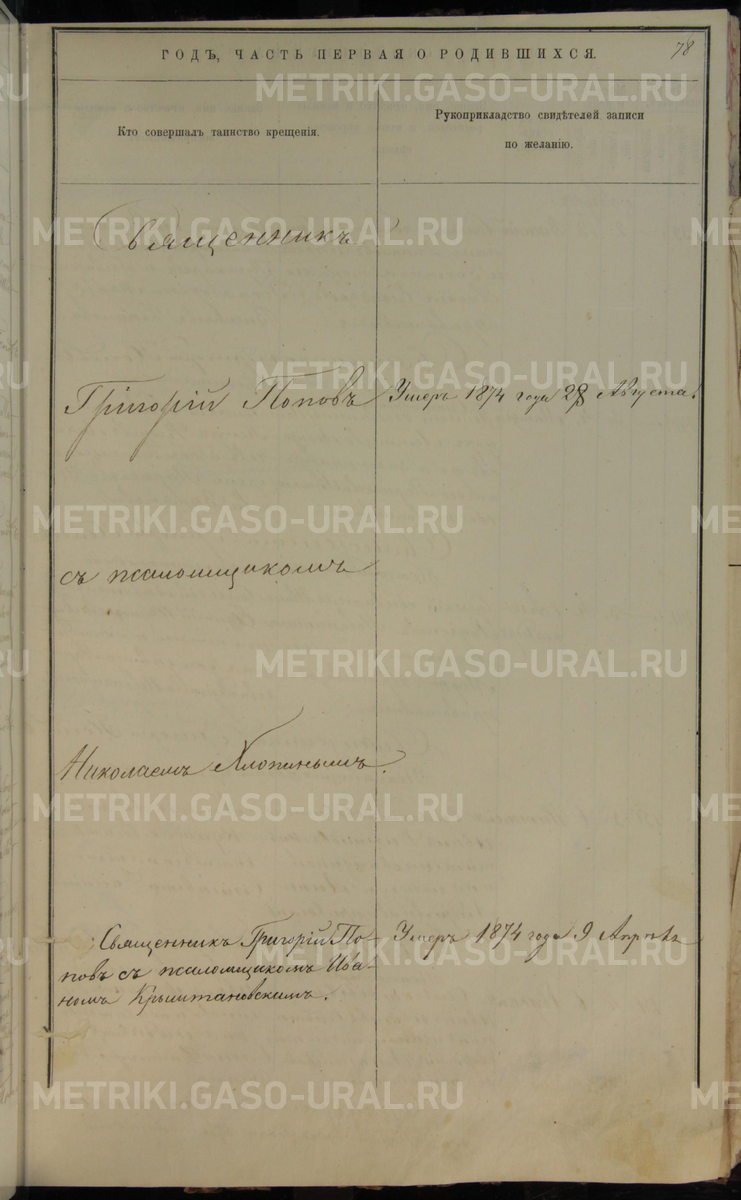 78
ГОДЪ, ЧАСТЬ ПЕРВАЯ О РОДИВШИХСЯ.
Кто совершалъ таинство крещенія.
Рукоприкладство свидѣтелей записи
по желанію.
Священникъ
Григорій Поповъ
Умеръ 1874 года 28 Августа.
съ псаломщикомъ
Николаемъ Хлопинымъ.
Священникъ Григорій По-
повъ съ псаломщикомъ Ива-
номъ Крыштановскимъ.
Умеръ 1874 года 9 Апрѣля
METRIKI.GASO-URAL.RU